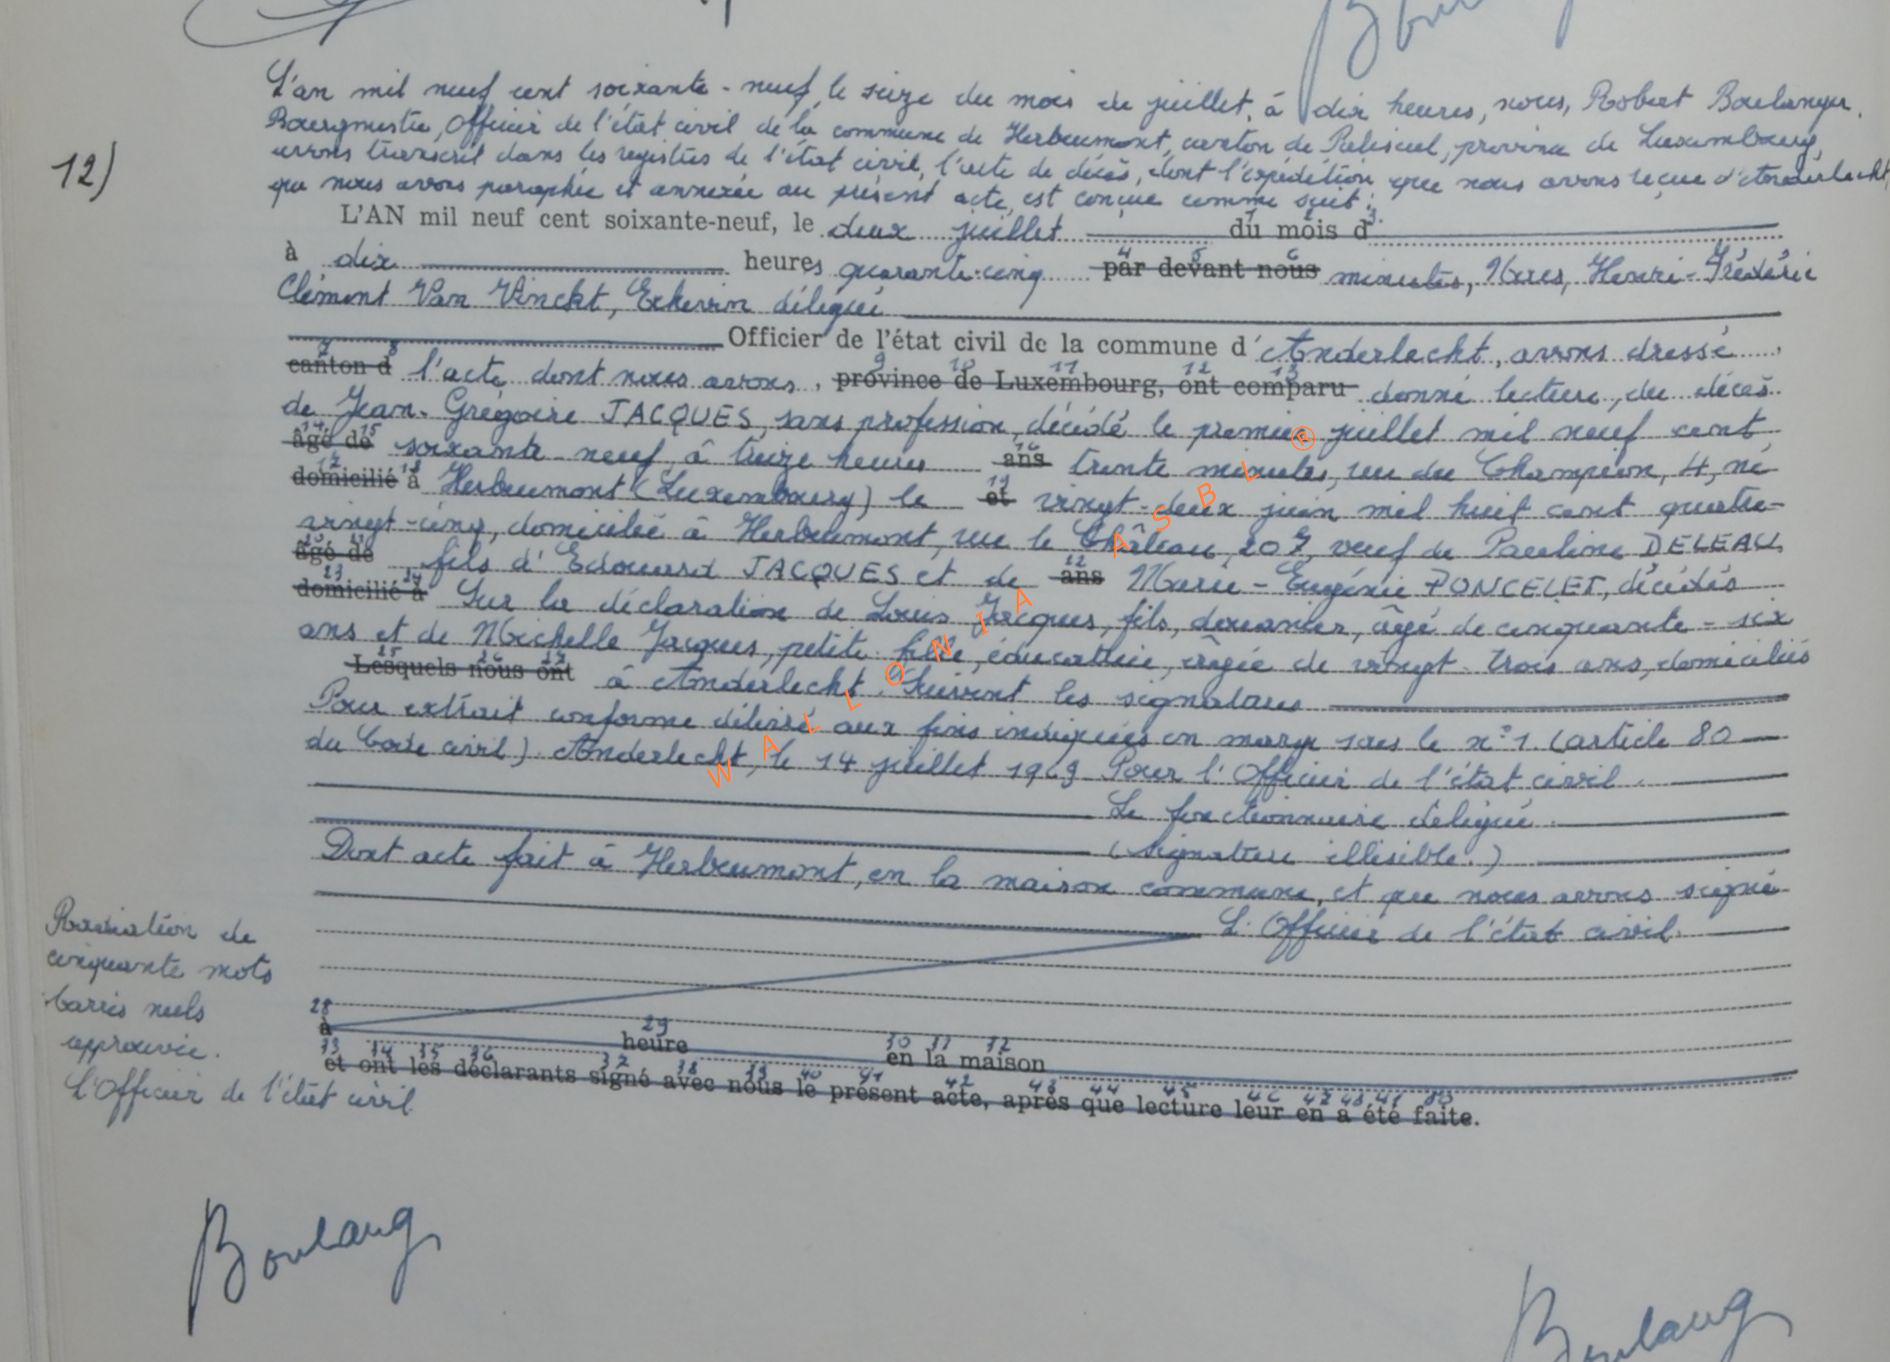 L'an mil neuf cent soixante-neuf, le seize du mois de juillet, à dix heures, nous, Robert Boulanger,
Bourgmestre, Officier de l'état civil de la commune de Herbeumont, canton de Paliseul, province de Luxembourg,
12)
avons transcrit dans les registres de l'état civil, l'acte de décès, dont l'expédition, que nous avons reçue d'Anderlecht,
que nous avons paraphée et annexée au présent acte, est conçue comme suit:
L'AN mil neuf cent soixante-neuf, le deux juillet du mois d
1 2 3
à dix heures quarante-cinq par devant nous minutes, Nous, Henri-Frédéric
4 5 6
Clément Van Vinckt, Echevin délégué
Officier de l'état civil de la commune d'Anderlecht, avons dressé
canton d l'acte dont nous avons, province de Luxembourg, ont comparu donné lecture, du décès
7 8 9 10 11 12 13
de Jean-Grégoire JACQUES, sans profession, décédé le premier juillet mil neuf cent
âgé de soixante-neuf, à treize heures ans trente minutes, rue du Champion, 4, né
14 15 16
domicilié à Herbeumont (Luxembourg) le et vingt-deux juin mil huit cent quatre-
17 18 19
vingt-cinq, domicilié à Herbeumont, rue le Château, 207, veuf de Pauline DELEAU,
âgé de fils d'Edouard JACQUES et de ans Marie-Eugénie PONCELET, décédés
20 21 22
domicilié à Sur la déclaration de Louis Jacques, fils, douanier, âgé de cinquante-six
23 24
ans et de Michelle Jacques, petite fille, éducatrice, âgée de vingt-trois ans, domiciliés
Lesquels nous ont à Anderlecht. Suivent les signatures
25 26 27
Pour extrait conforme délivré aux fins indiquées en marge sous le n°1. (article 80
du Code civil) Anderlecht, le 14 juillet 1969 Pour l'Officier de l'état civil.
Le fonctionnaire délégué.
(Signature illisible.)
Dont acte fait à Herbeumont, en la maison commune, et que nous avons signé
L'Officier de l'état civil.
Radiation de
cinquante mots
barrés nuls
approuvée.
L'Officier de l'état civil
28 29 30 31 32
à heure en la maison
33 34 35 36 37 38 39 40 41 42 43 44 45 46 47 48 49 50
et ont les déclarants signé avec nous le présent acte, après que lecture leur en a été faite.
WALLONIA ASBL ®
Boulang
Boulang